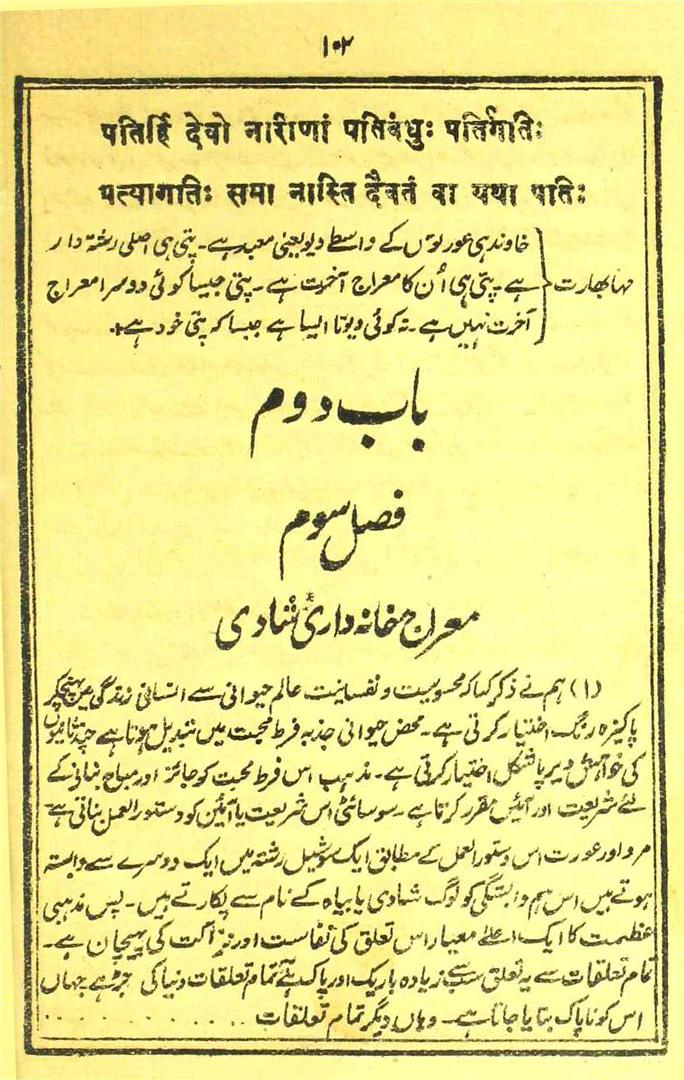 ۱۰۲
पतिर्हि देवो नारीणां पतिबंधुः पतिर्गातिः
पत्यागातिः समा नास्ति दैवतं वा यथा पातिः
خاوند ہی عورتوں کے واسطے دیو یعنی معبد ہے۔ پتی ہی اصلی رشتہ دار
مہابھارت { ہے۔ پتی ہی اُن کا معراج آخرت ہے۔ پتی جیسا کوئی دوسرا معراج
آخرت نہیں ہے۔ نہ کوئی دیوتا ایسا ہے جیسا کہ پتی خود ہے +
باب دوم
فصل سوم
معراج خانہ داریٔ شادی
(۱) ہم نے ذکر کیا کہ محسوسیت و نفسانیت عالم حیوانی سے انسانی زندگی میں پہنچکر
پاکیزہ رنگ اختیار کرتی ہے۔ محض حیوانی جذبہ فرط محبت میں تبدیل ہوتا ہے
کی خواہش دیرپا شکل اختیار کرتی ہے۔ مذہب اس فرط محبت کو جائز اور مباح بنانے کے
لئے شریعت اور آئین مقرر کرتا ہے۔ سوسائٹی اس شریعت یا آئین کو دستور العمل بناتی ہے۔
مرد اور عورت اس دستور العمل کے مطابق ایک سوشیل رشتہ میں ایک دوسرے سے وابستہ
ہوتے ہیں اس ہم وابستگی کو لوگ شادی یا بیاہ کے نام سے پکارتے ہیں۔ پس مذہبی
عظمت کا ایک اعلےٰ معیار اس تعلق کی نفاست اور نزاکت کی پہچان ہے۔
تمام تعلقات سے یہ تعلق سب سے زیادہ باریک اور پاک ہے تمام تعلقات دنیا کی جڑ ہے جہاں
اس کو ناپاک بتایا جاتا ہے۔ وہاں دیگر تمام تعلقات . . . . . . . . . .